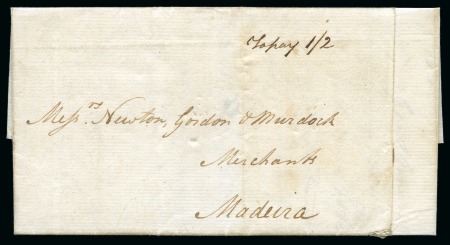 To pay 1/2
Messrs. Newton, Gordon & Murdoch
Merchants
Madeira